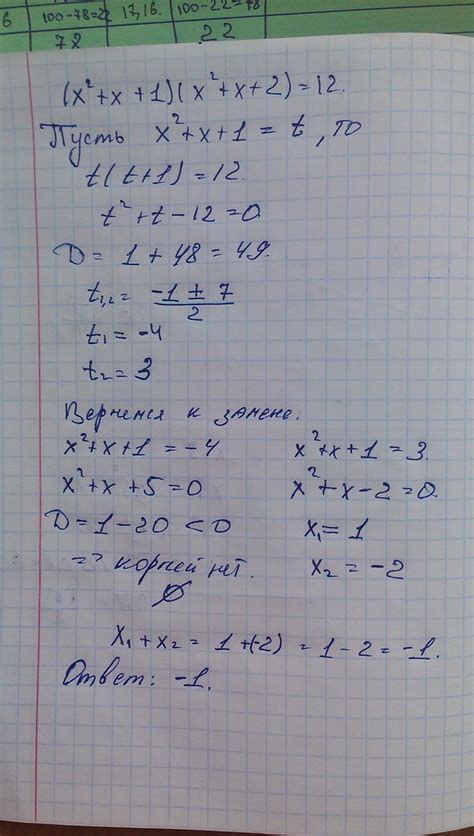 6 100-78=22 17,16. 100-22=78
78 22
(x²+x+1)(x²+x+2)=12.
Пусть x²+x+1=t, то
t(t+1)=12.
t²+t-12=0.
D=1+48=49.
t₁,₂=-1±7/2
t₁=-4
t₂=3
Вернемся к замене:
x²+x+1=-4 x²+x+1=3.
x²+x+5=0 x²+x-2=0.
D=1-20<0 x₁=1
=> корней нет. x₂=-2
∅
x₁+x₂=1+(-2)=1-2=-1.
Ответ: -1.